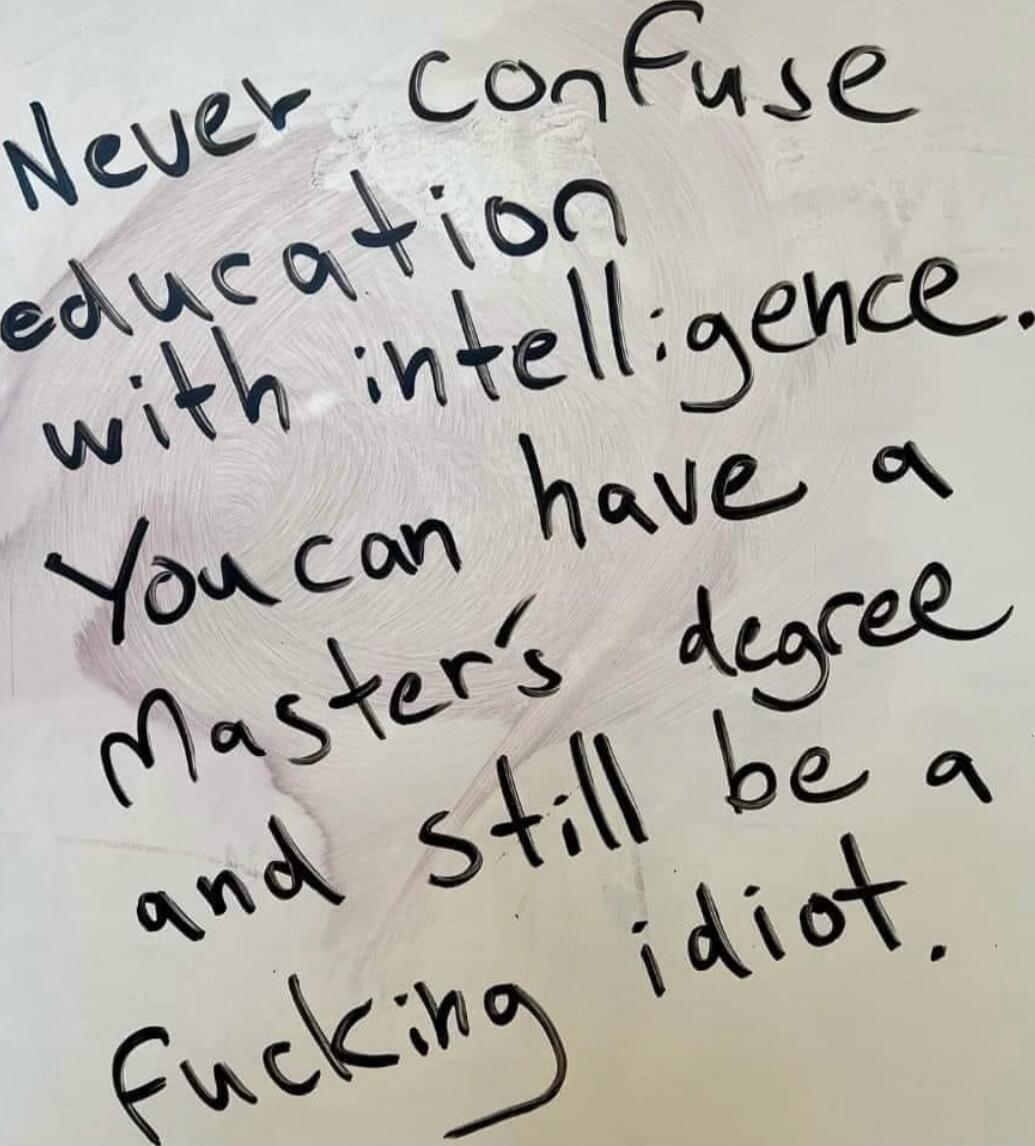 Never confuse
education
with intelligence.
You can have a
Master's degree
and still be a
fucking idiot.